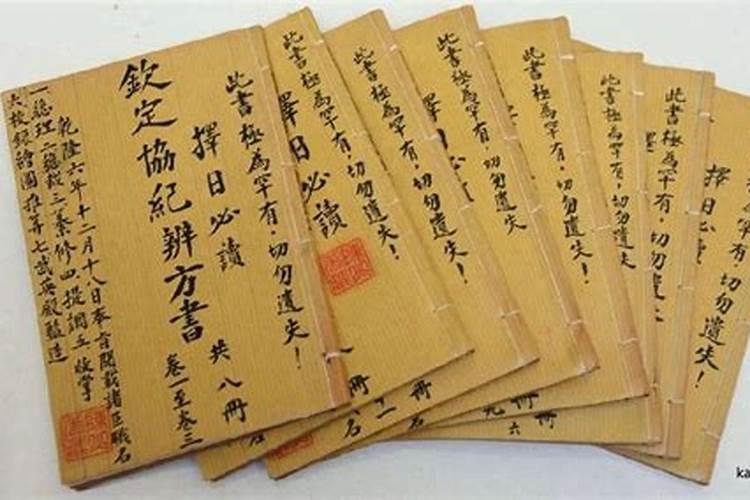 此書極為罕有，切勿遺失！
擇日必讀
共八冊
欽定協紀辨方書
卷一至卷三
乾隆六年十二月十八日奉旨開載諸臣職名
一總理二總裁三纂修四提調五收掌
六校錄繪圖推算七武英殿監造
此書極為罕有，切勿遺失！
擇日必讀
冊
此書極為罕有，切勿遺失！
擇日必讀
冊
此書極為罕有，切勿遺失
冊
此書極為罕有，切勿遺失！
冊
此書極為罕有，切勿遺失
此書極為罕有，切勿遺
罕有，切勿遺失！
擇日必讀
ka